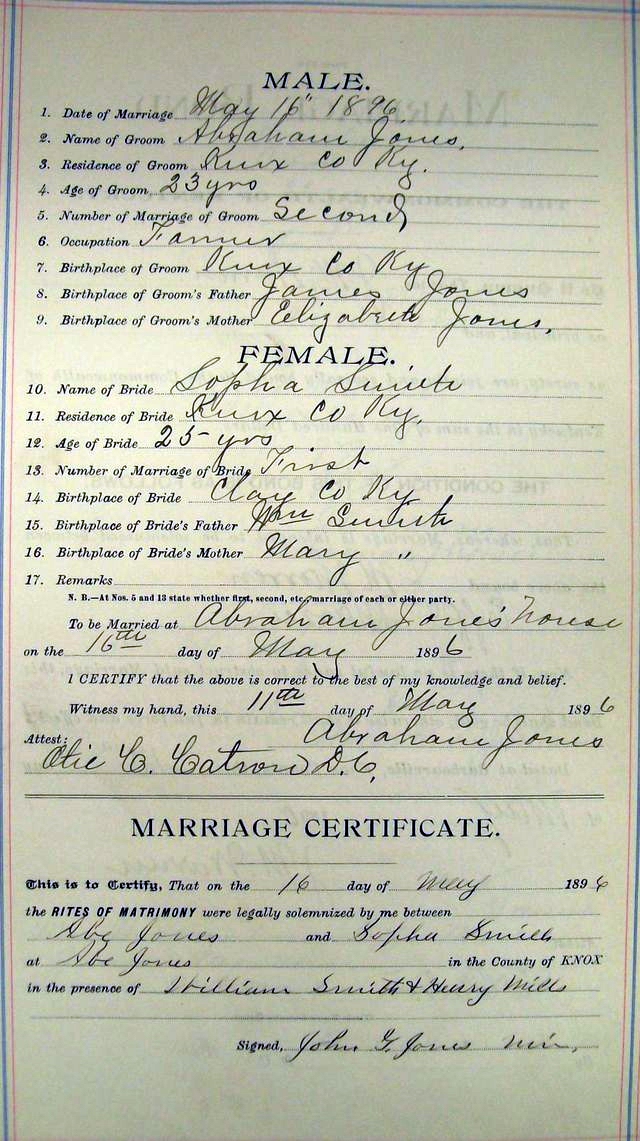 MALE.
1. Date of Marriage May 16" 1896
2. Name of Groom Abraham Jones,
3. Residence of Groom Knox Co Ky.
4. Age of Groom, 23 yrs
5. Number of Marriage of Groom Second
6. Occupation Farmer
7. Birthplace of Groom Knox Co Ky
8. Birthplace of Groom's Father James Jones
9. Birthplace of Groom's Mother Elizabeth Jones,
FEMALE.
10. Name of Bride Sopha Smith
11. Residence of Bride Knox Co Ky,
12. Age of Bride 25 yrs
13. Number of Marriage of Bride First
14. Birthplace of Bride Clay Co Ky
15. Birthplace of Bride's Father Wm Smith
16. Birthplace of Bride's Mother Mary "
17. Remarks
N. B.—At Nos. 5 and 13 state whether first, second, etc., marriage of each or either party.
To be Married at Abraham Jones' house
on the 16th day of May 1896
I CERTIFY that the above is correct to the best of my knowledge and belief.
Witness my hand, this 11th day of May 1896
Abraham Jones
Attest:
Otie C. Catron D.C,
MARRIAGE CERTIFICATE.
This is to Certify, That on the 16 day of May 1896
the RITES OF MATRIMONY were legally solemnized by me between
Abe Jones and Sopha Smith
at Abe Jones in the County of KNOX
in the presence of William Smith & Henry Mills
Signed, John G. Jones Min,